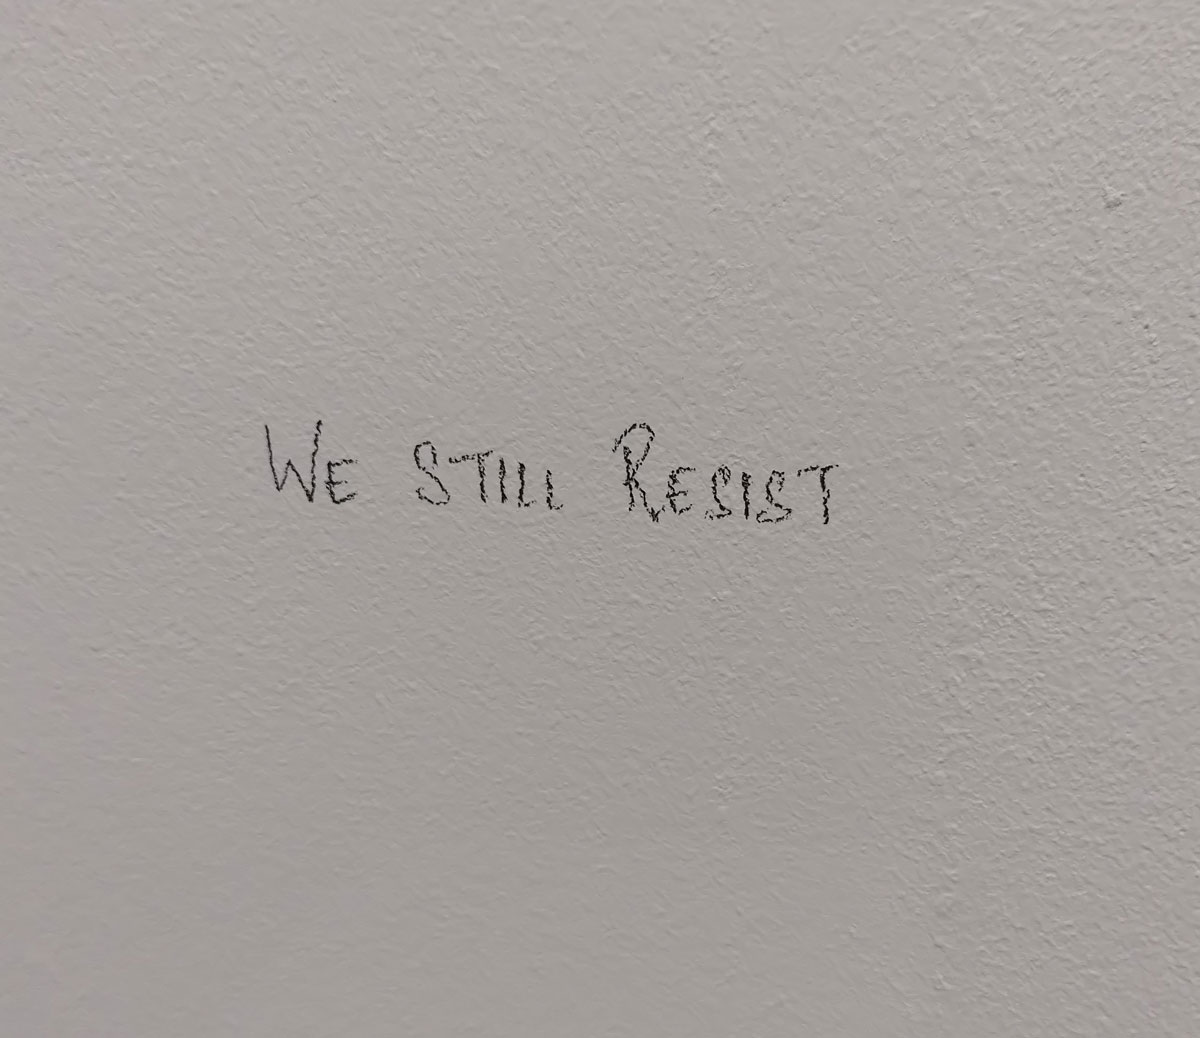 We Still Resist